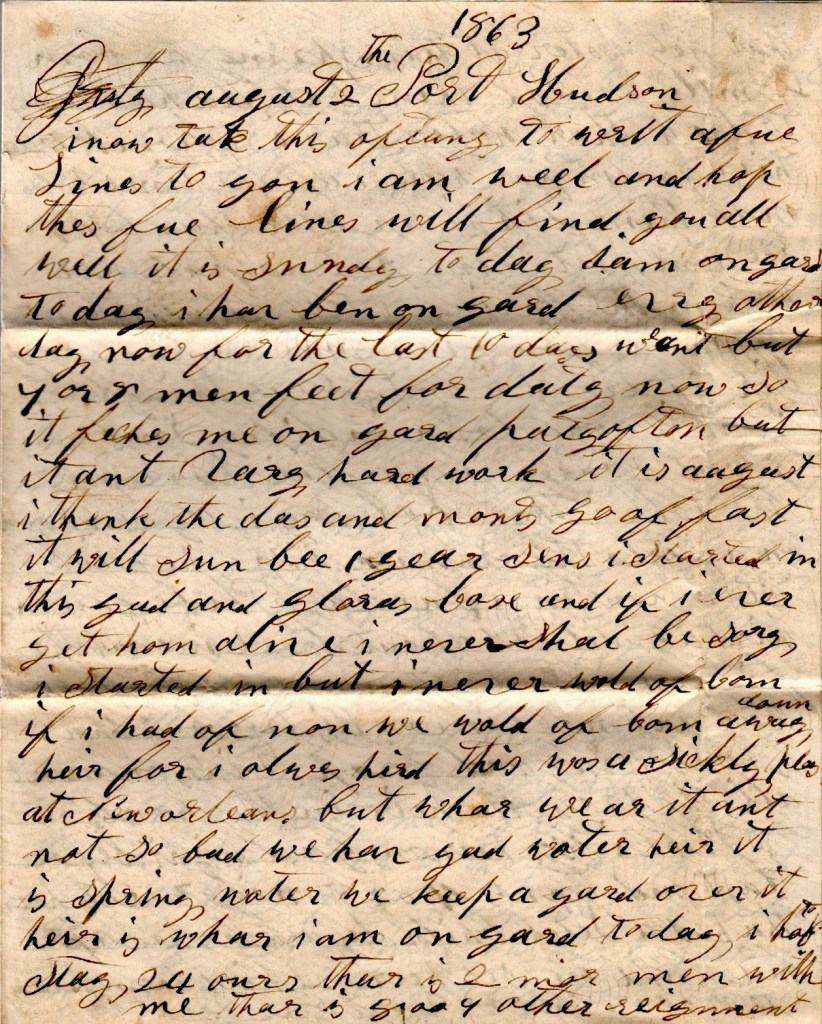 1863
august 2 the Port Hudson
i now tak this to writ a fue
Lines to you i am well and hop
thes fue lines will find you all
well it is Sundy to day i am on gard
to day i hav ben on gard evry other
day now for the last 10 days we ant but
7 or 8 men feet for duty now so
it feches me on gard puty often but
it ant vary hard work it is august
i think the das and monts go of fast
it will sun bee 1 year sens i started in
this gud and gloras and if i ever
get hom alive i never shal be sory
i started in but i never wold of com
if i had of non we wold of com down away
heir for i alwes hird this was a sickly plas
at New orleans but whar we ar it ant
not so bad we hav gud water heir it
is spring water we keep a gard over it
heir is whar i am on gard to day i haf to
stay 24 ours thar is 2 mor men with
me thar is 4 other reignment